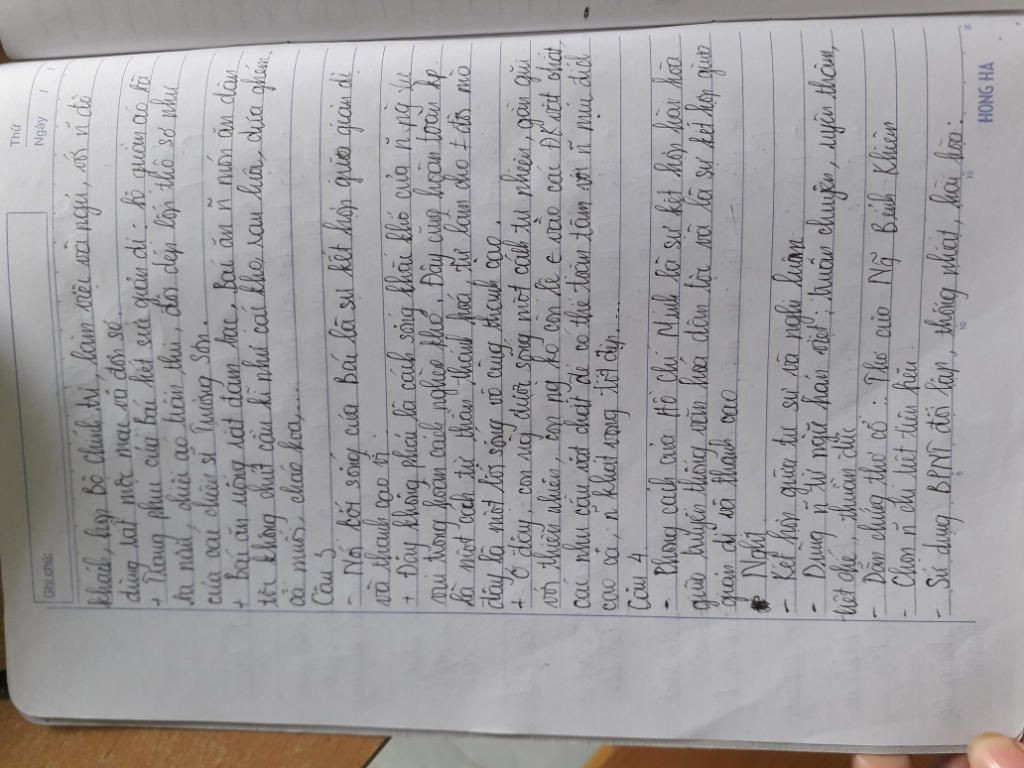 Thứ
Ngày / /
Ghi chú:
khách, họp Bộ chính trị, làm việc và ngủ, với ñ đồ
dùng rất mộc mạc và đơn sơ.
+ Trang phục của Bác hết sức giản dị: bộ quần áo bà
ba nâu, chiếc áo trấn thủ, đôi dép lốp thô sơ như
của các chiến sĩ Trường Sơn.
+ Bác ăn uống rất đạm bạc, Bác ăn ñ món ăn dân
tộc không chút cầu kì như cá kho, rau luộc, dưa ghém,
cà muối, cháo hoa,...
Câu 3
- Nói lối sống của Bác là sự kết hợp giữa giản dị
và thanh cao vì
+ Đây không phải là cách sống khắc khổ của ñ ng tự
vui trong hoàn cảnh nghèo khổ. Đây cũng hoàn toàn kp
là một cách tự thần thánh hoá, tự làm cho ≠ đời mà
đây là một lối sống vô cùng thanh cao.
+ Ở đây, con ng đã sống một cách tự nhiên, gần gũi
với thiên nhiên, con ng ko còn lệ c vào các ĐK vật chất,
các nhu cầu vật chất để có thể toàn tâm với ñ mục đích
cao cả, ñ khát vọng tốt đẹp......
Câu 4
- Phong cách của Hồ Chí Minh là sự kết hợp hài hoà
giữa truyền thống văn hoá dân tộc và là sự kết hợp giữa
giản dị và thanh cao
Nghệ
- Kết hợp giữa tự sự và nghị luận
- Dùng ñ từ ngữ hán việt: truân chuyên, uyên thâm,
tiết chế, thuần đức
- Dẫn chứng thơ cổ: Thơ của Ng Bỉnh Khiêm
- Chọn ñ chi tiết tiêu biểu
- Sử dụng BPNT đối lập, thống nhất, hài hòa.
5 10 15 20
HONG HA